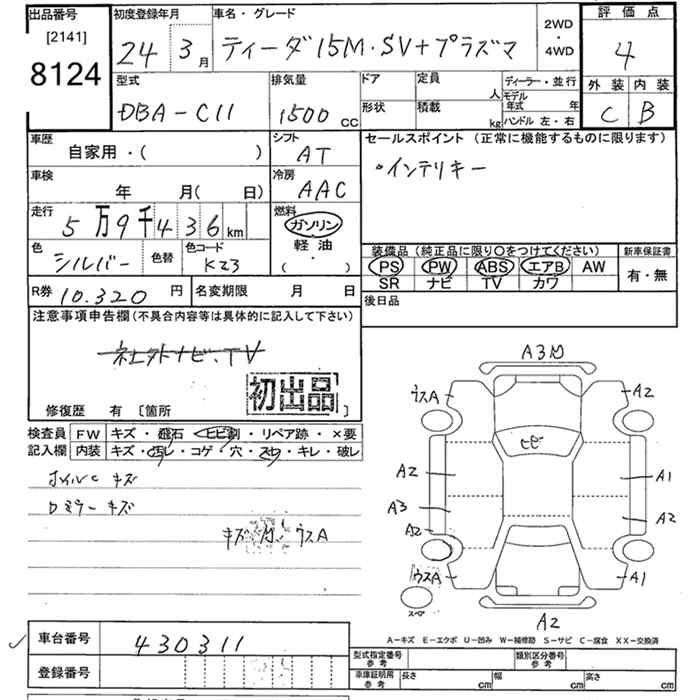 出品番号 初度登録年月 車名・グレード 2WD・4WD 評価点
[2141]
8124
24 3月 ティーダ 15M・SV+プラズマ 4
型式 排気量 ドア 定員 人 ディーラー・並行 外装 内装
DBA-C11 1500 CC 形状 積載 kg モデル年式 年 C B
ハンドル 左・右
車歴 シフト セールスポイント(正常に機能するものに限ります)
自家用・( ) AT
・インテリキー
車検 冷房
年 月( 日) AAC
走行 燃料
5万9千436km ガソリン
軽油
( ・ )
色 色替 色コード
シルバー K23
装備品(純正品に限り〇をつけてください) 新車保証書
PS PW ABS エアB AW 有・無
SR ナビ TV カワ
R券 10.320円 名変期限 月 日 後日品
注意事項申告欄(不具合内容等は具体的に記入して下さい)
社外ナビ、TV
初出品
修復歴 有 [箇所 ]
検査員 FW キズ・飛石・ヒビ割・リペア跡・×要
記入欄 内装 キズ・汚レ・コゲ・穴・スレ・キレ・破レ
ホイルC キズ
Dミラー キズ
キズ ウスA
A3
ウスA A2
ヒビ
A2 A1
A3 A2
A2
ウスA A1
スペア
A2
A-キズ E-エクボ U-凹み W-補修跡 S-サビ C-腐食 XX-交換済
車台番号 430311
登録番号
型式指定番号 参考 類別区分番号 参考
車庫証明用 参考 長さ cm 幅 cm 高さ cm